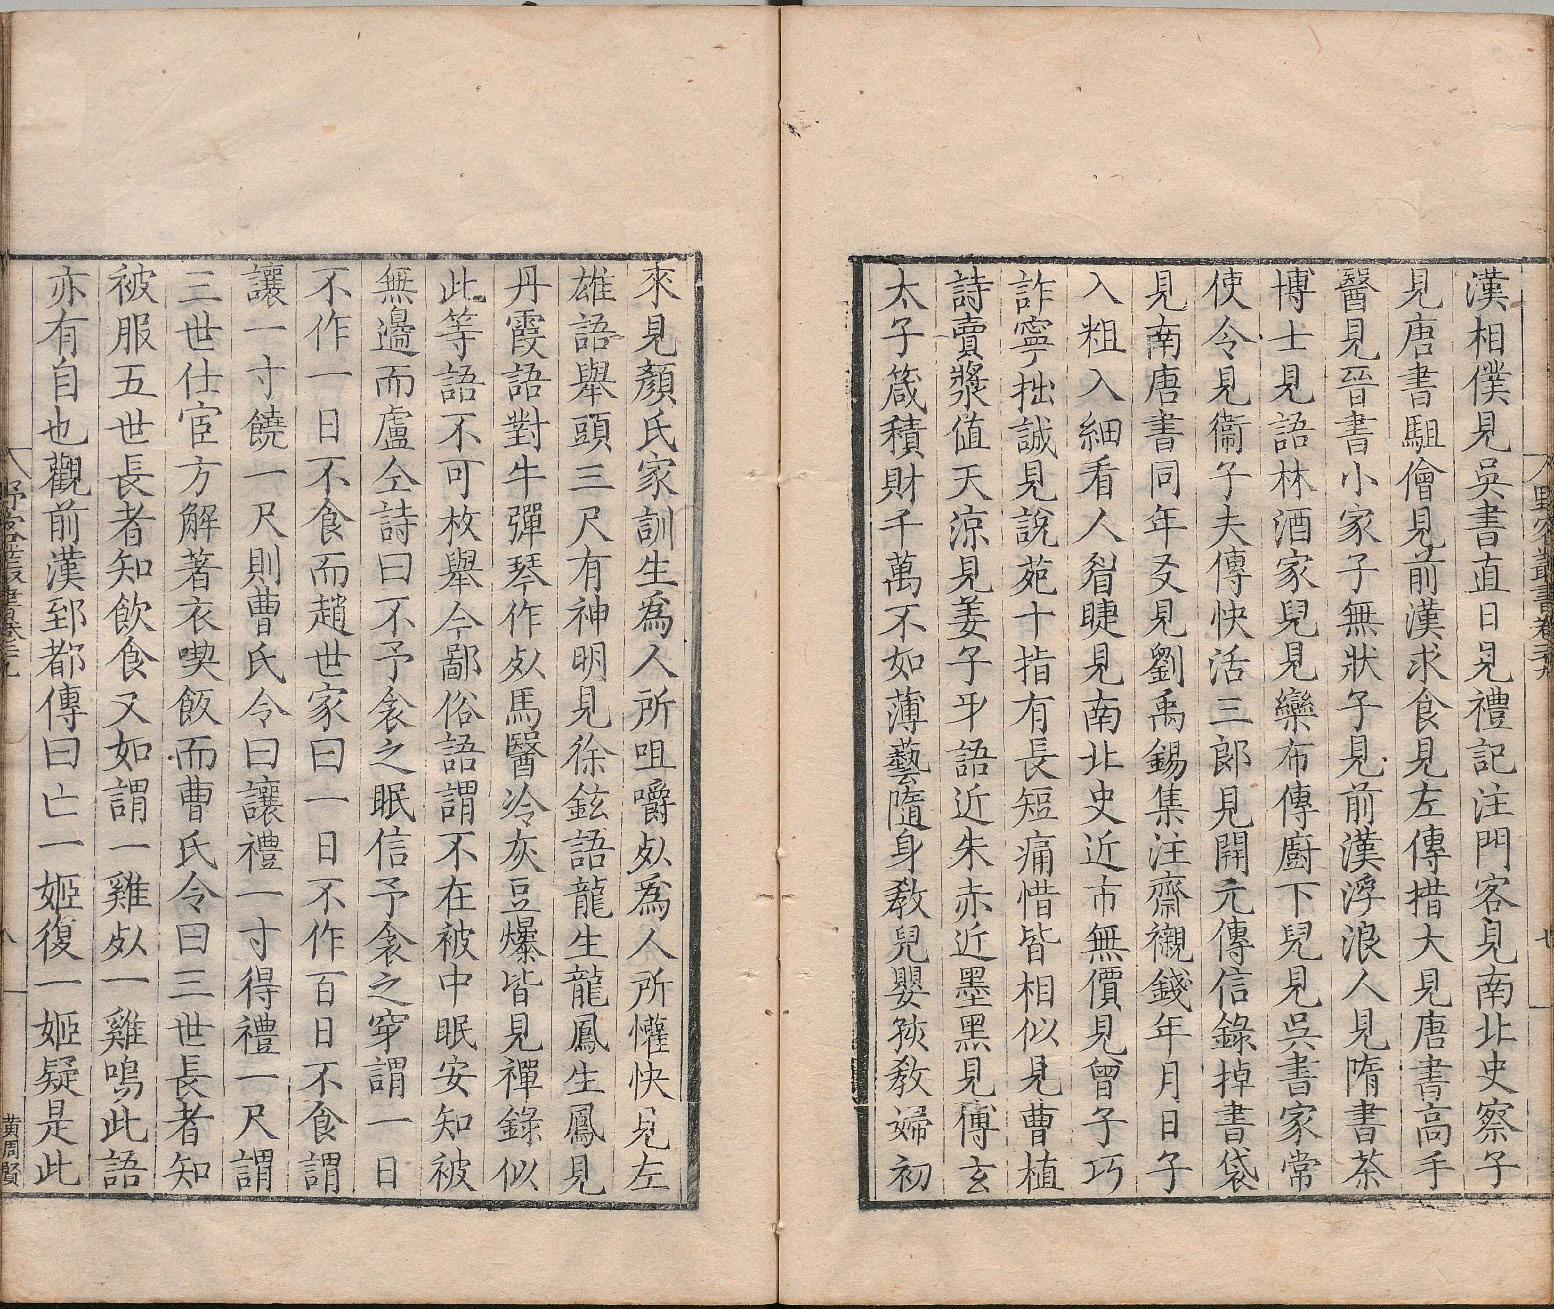 漢相僕見吳書直日見禮記注門客見南北史察子
見唐書駔儈見前漢求食見左傳措大見唐書高手
醫見晉書小家子無狀子見前漢浮浪人見隋書茶
博士見語林酒家兒見欒布傳廚下兒見吳書家常
使令見衞子夫傳快活三郎見開元傳信錄掉書袋
見南唐書同年㕛見劉禹錫集注齋襯錢年月日子
入粗入細看人眉睫見南北史近市無價見曾子巧
詐寧拙誠見說苑十指有長短痛惜皆相似見曹植
詩賣漿値天涼見姜子牙語近朱赤近墨黑見傅玄
太子箴積財千萬不如薄藝隨身敎兒嬰孩敎婦初
來見顏氏家訓生爲人所咀嚼𠈇爲人所懽快見左
雄語舉頭三尺有神明見徐鉉語龍生龍鳳生鳳見
丹霞語對牛彈琴作𠈇馬醫冷灰豆爆皆見禪錄似
此等語不可枚舉今鄙俗語謂不在被中眠安知被
無邊而盧仝詩曰不予衾之眠信予衾之穿謂一日
不作一日不食而趙世家曰一日不作百日不食謂
讓一寸饒一尺則曹氏令曰讓禮一寸得禮一尺謂
三世仕宦方解著衣喫飯而曹氏令曰三世長者知
被服五世長者知飲食又如謂一雞𠈇一雞鳴此語
亦有自也觀前漢郅都傳曰亡一姬復一姬疑是此
野客叢書卷二十九
黄周賢